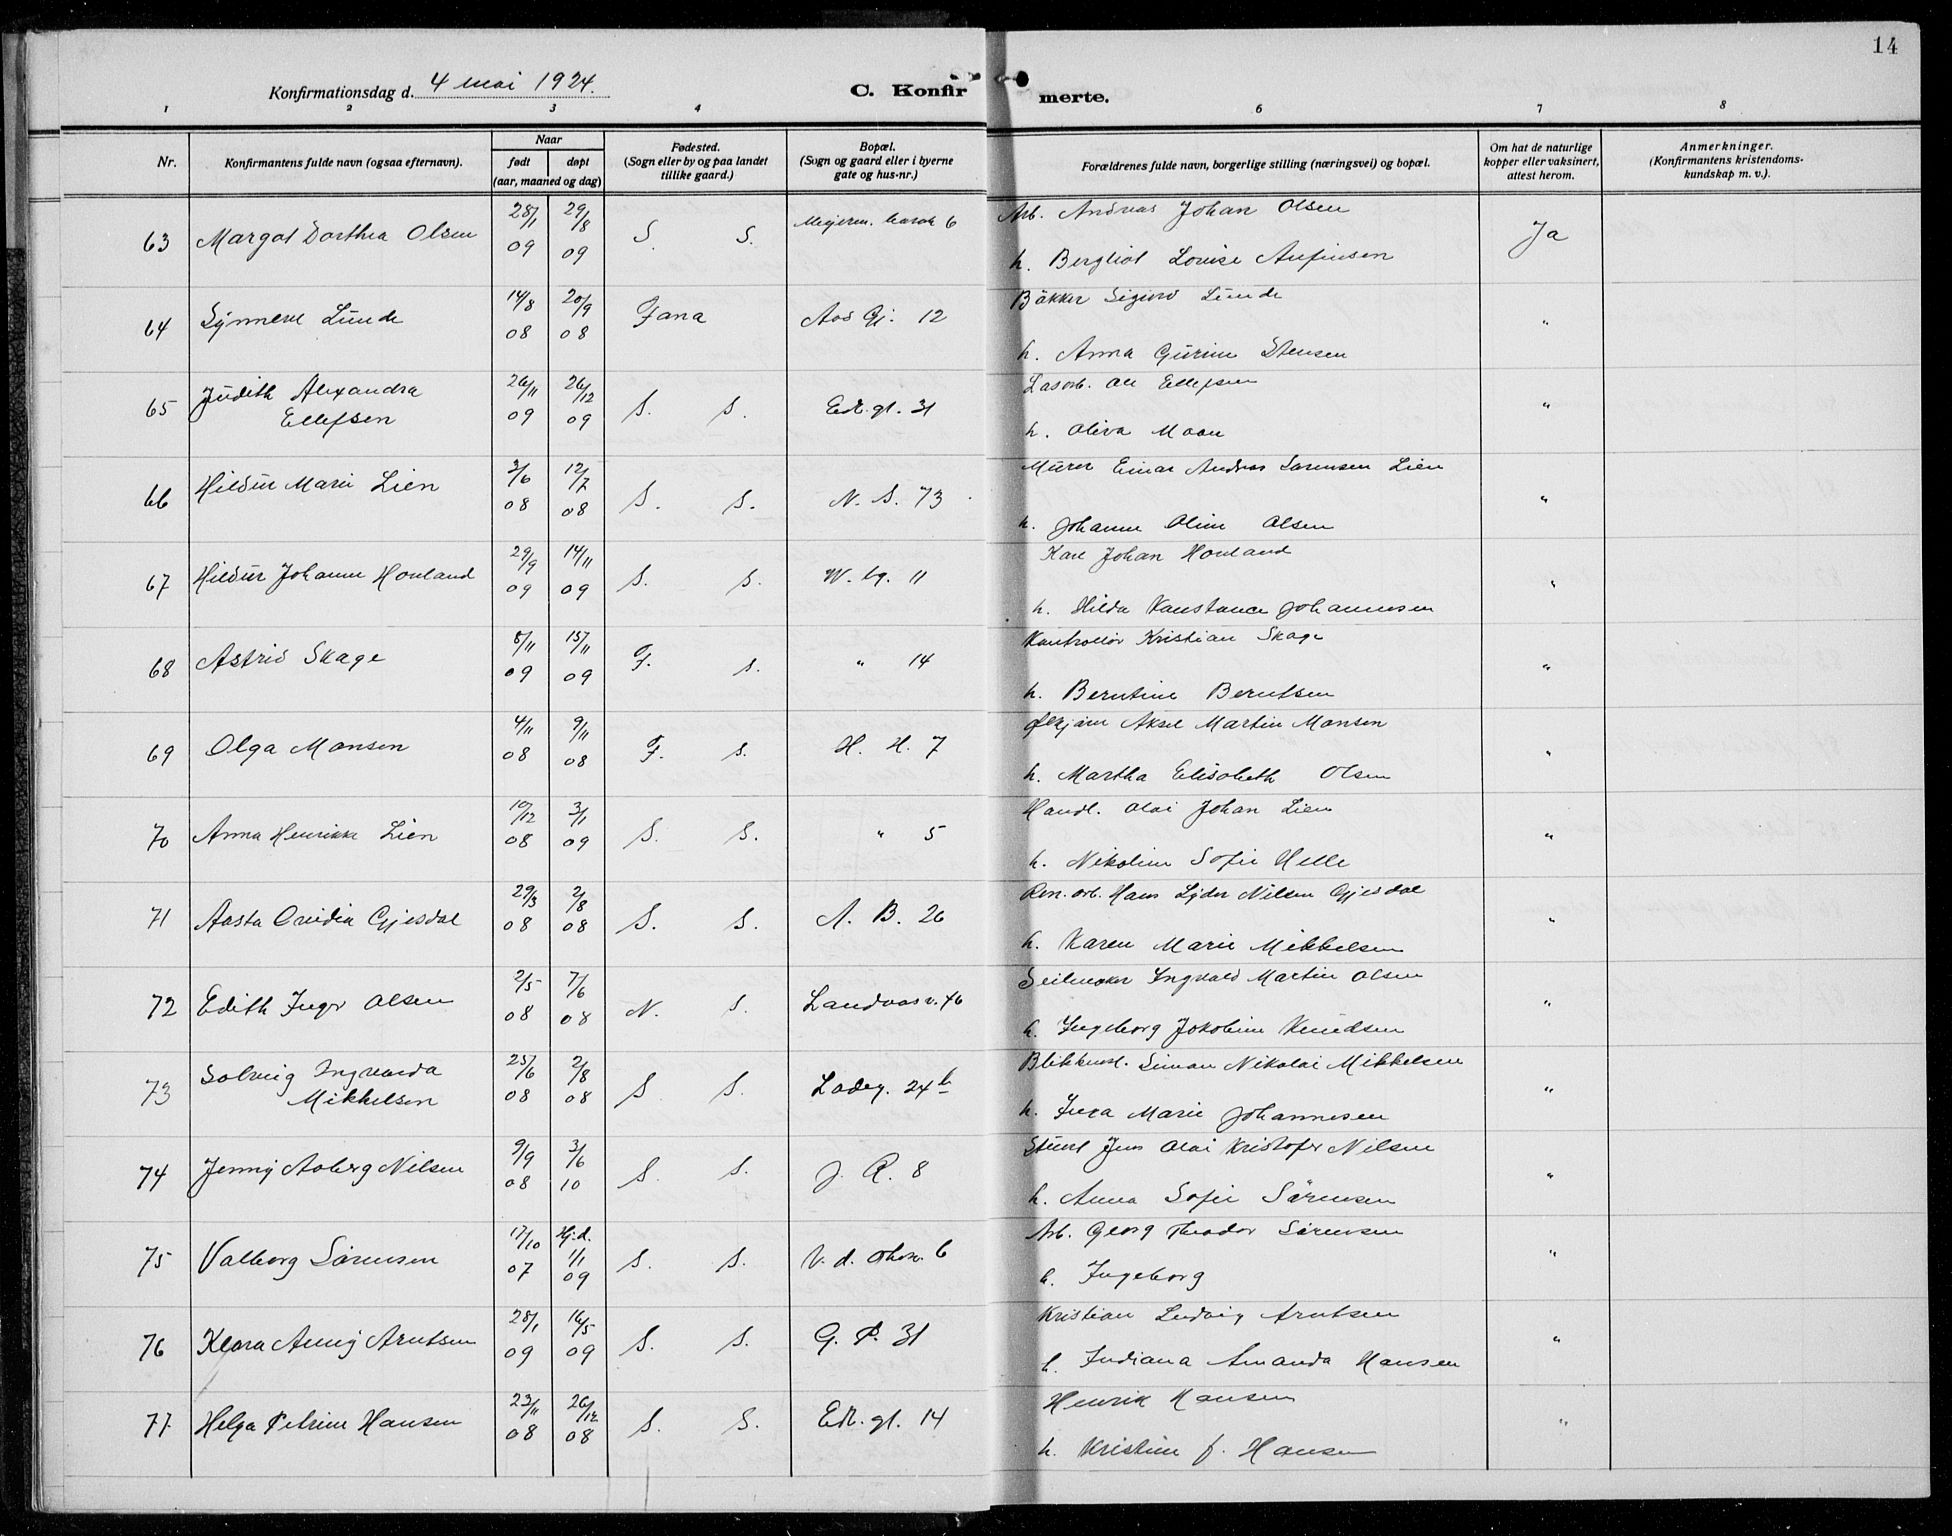 14
Konfirmationsdag d. 4 mai 1924.
C. Konfirmerte.
1 2 3 4 6 7 8
Nr.
Konfirmantens fulde navn (ogsaa efternavn).
Naar
født døpt
(aar, maaned og dag)
Fødested.
(Sogn eller by og paa landet
tillike gaard.)
Bopæl.
(Sogn og gaard eller i byerne
gate og hus-nr.)
Forældrenes fulde navn, borgerlige stilling (næringsvei) og bopæl.
Om hat de naturlige
kopper eller vaksinert,
attest herom.
Anmerkninger.
(Konfirmantens kristendoms-
kundskap m. v.).
63 Margot Dorthea Olsen 28/1 09 29/8 09 S. S. 6 Arb. Andreas Johan Olsen Ja
h. Bergliot Lovise Anfinsen
64 Synneve Lunde 14/8 08 20/9 08 Fana Aas Gj. 12 Bökker Sigurd Lunde "
h. Anna Gurine Stensen
65 Judith Alexandra
Ellefsen 26/11 09 26/12 09 S. S. 31 Ole Ellefsen "
h. Oliva Moan
66 Hildur Marie Lien 3/6 08 12/7 08 S. S. N. S. 73 Murer Einar Andreas Sørensen Lien "
h. Johanne Oline Olsen
67 Hildur Johanne Hovland 29/9 09 14/11 09 S. S. W. bg. 11 Karl Johan Hovland "
h. Hilda Konstance Johannesen
68 Astrid Skage 8/11 09 15/11 09 F. S. " 14 Kontrollör Kristian Skage "
h. Berntine Berntsen
69 Olga Monsen 4/11 08 9/11 08 F. S. H. H. 7 Aksel Martin Monsen "
h. Martha Elisabeth Olsen
70 Anna Henrikke Lien 10/12 08 3/1 09 S. S. " 5 Handl. Olai Johan Lien "
h. Nikoline Sofie Helle
71 Aasta Ovidia Gjesdal 29/3 08 2/8 08 S. S. A. B. 26 Ren. arb. Hans Lyder Nilsen Gjesdal "
h. Karen Marie Mikkelsen
72 Edith Inger Olsen 2/5 08 7/6 08 N. S. Landaas v. 46 Seilmaker Ingvald Martin Olsen "
h. Ingeborg Jakobine Knudsen
73 Solveig Ingvarda
Mikkelsen 25/6 08 2/8 08 S S. Ladeg. 24 b Blikkensl. Simon Nikolai Mikkelsen "
h. Inga Marie Johannesen
74 Jenny Aaberg Nilsen 9/9 08 3/6 10 S S. J. R. 8 Jens Olai Kristofer Nilsen "
h. Anna Sofie Sörensen
75 Valborg Sörensen 17/10 07 Hj.d. 1/1 09 S. S. 6 Arb. Georg Theodor Sörensen "
h. Ingeborg
76 Klara Anny Arntsen 28/1 09 16/5 09 S. S. G. P. 31 Kristian Ludvig Arntsen "
h. Indiana Amanda Hansen
77 Helga Petrine Hansen 23/11 08 26/12 08 S. S. 14 Henrik Hansen "
h. Kristine f. Hansen